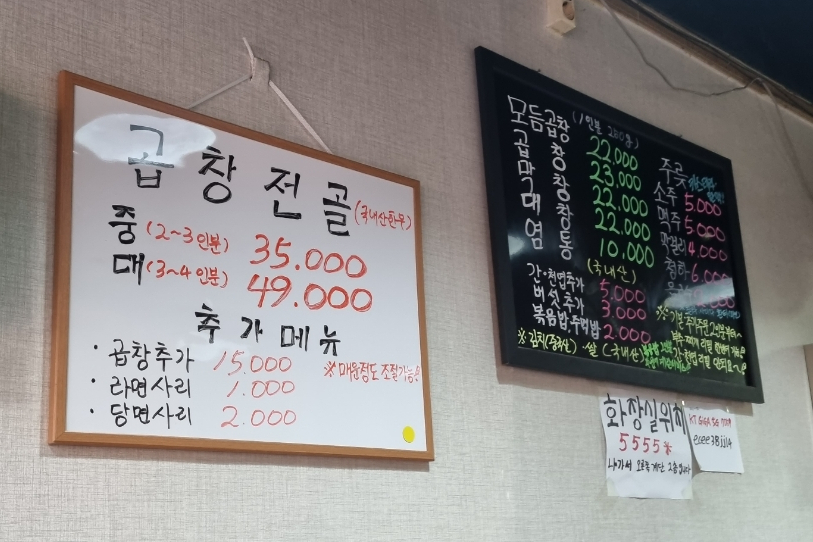 곱창전골
(국내산한우)
중 (2~3인분) 35.000
대 (3~4인분) 49.000
추가메뉴
· 곱창추가 15.000
· 라면사리 1.000
· 당면사리 2.000
※ 매운정도 조절가능
모듬곱창 (1인분 200g)
22.000
곱창 23.000
막창 22.000
대창 22.000
염통 10.000
(국내산)
간·천엽추가 5.000
버섯추가 3.000
볶음밥·주먹밥 2.000
주류
소주 5.000
맥주 5.000
막걸리 4.000
청하 6.000
※ 기본 주가주문 2인분부터~
간·천엽 리필 안되요~
※ 김치(중국산) · 쌀 (국내산)
화장실위치
5555*
나가서 오른쪽 계단 2층입니다
KT GiGA 5G